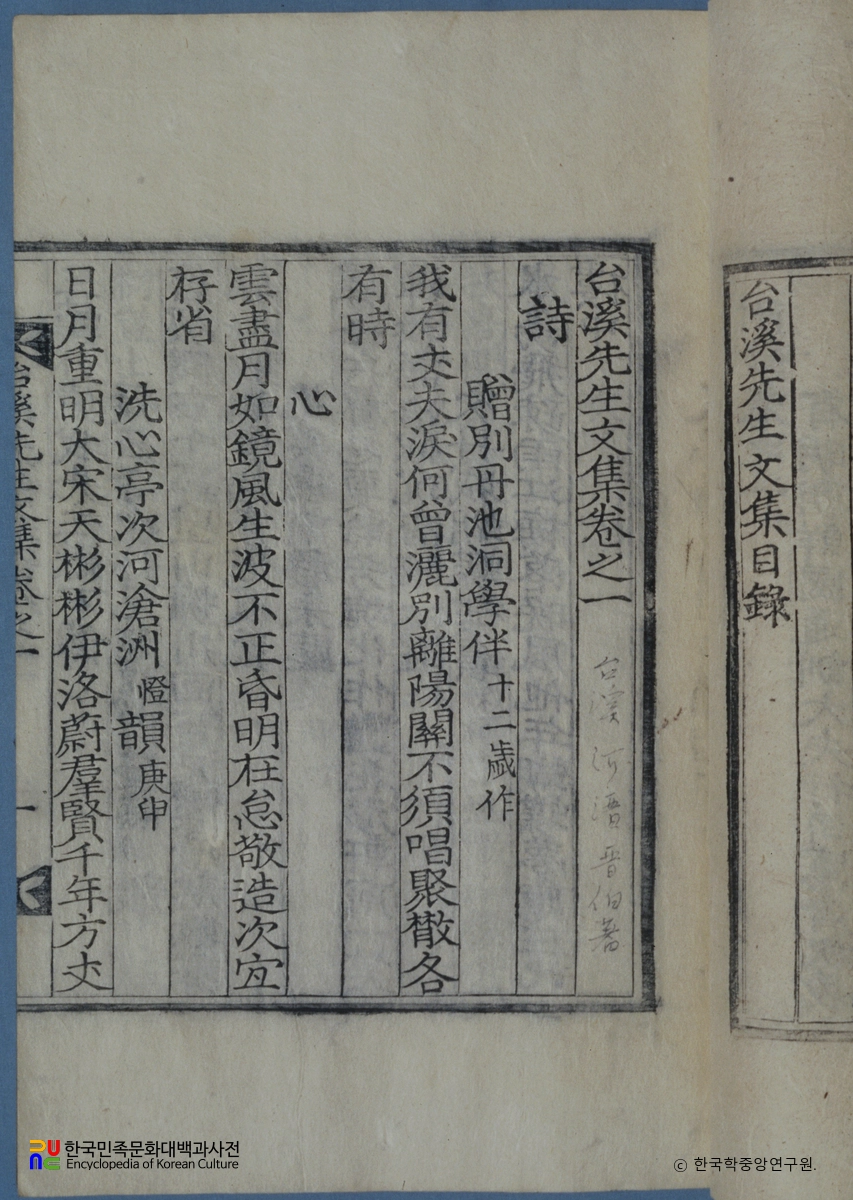 台溪先生文集目錄
台溪先生文集卷之一
台溪 河溍 晉伯 著
詩
贈別丹池洞學伴 十二歲作
我有丈夫淚何曾灑別離陽關不須唱聚散各
有時
心
雲盡月如鏡風生波不正昏明在怠敬造次宜
存省
洗心亭次河滄洲 憕 韻 庚申
日月重明大宋天彬彬伊洛蔚羣賢千年方丈
台溪先生文集卷之一 一
한국민족문화대백과사전
Encyclopedia of Korean Culture
ⓒ 한국학중앙연구원.